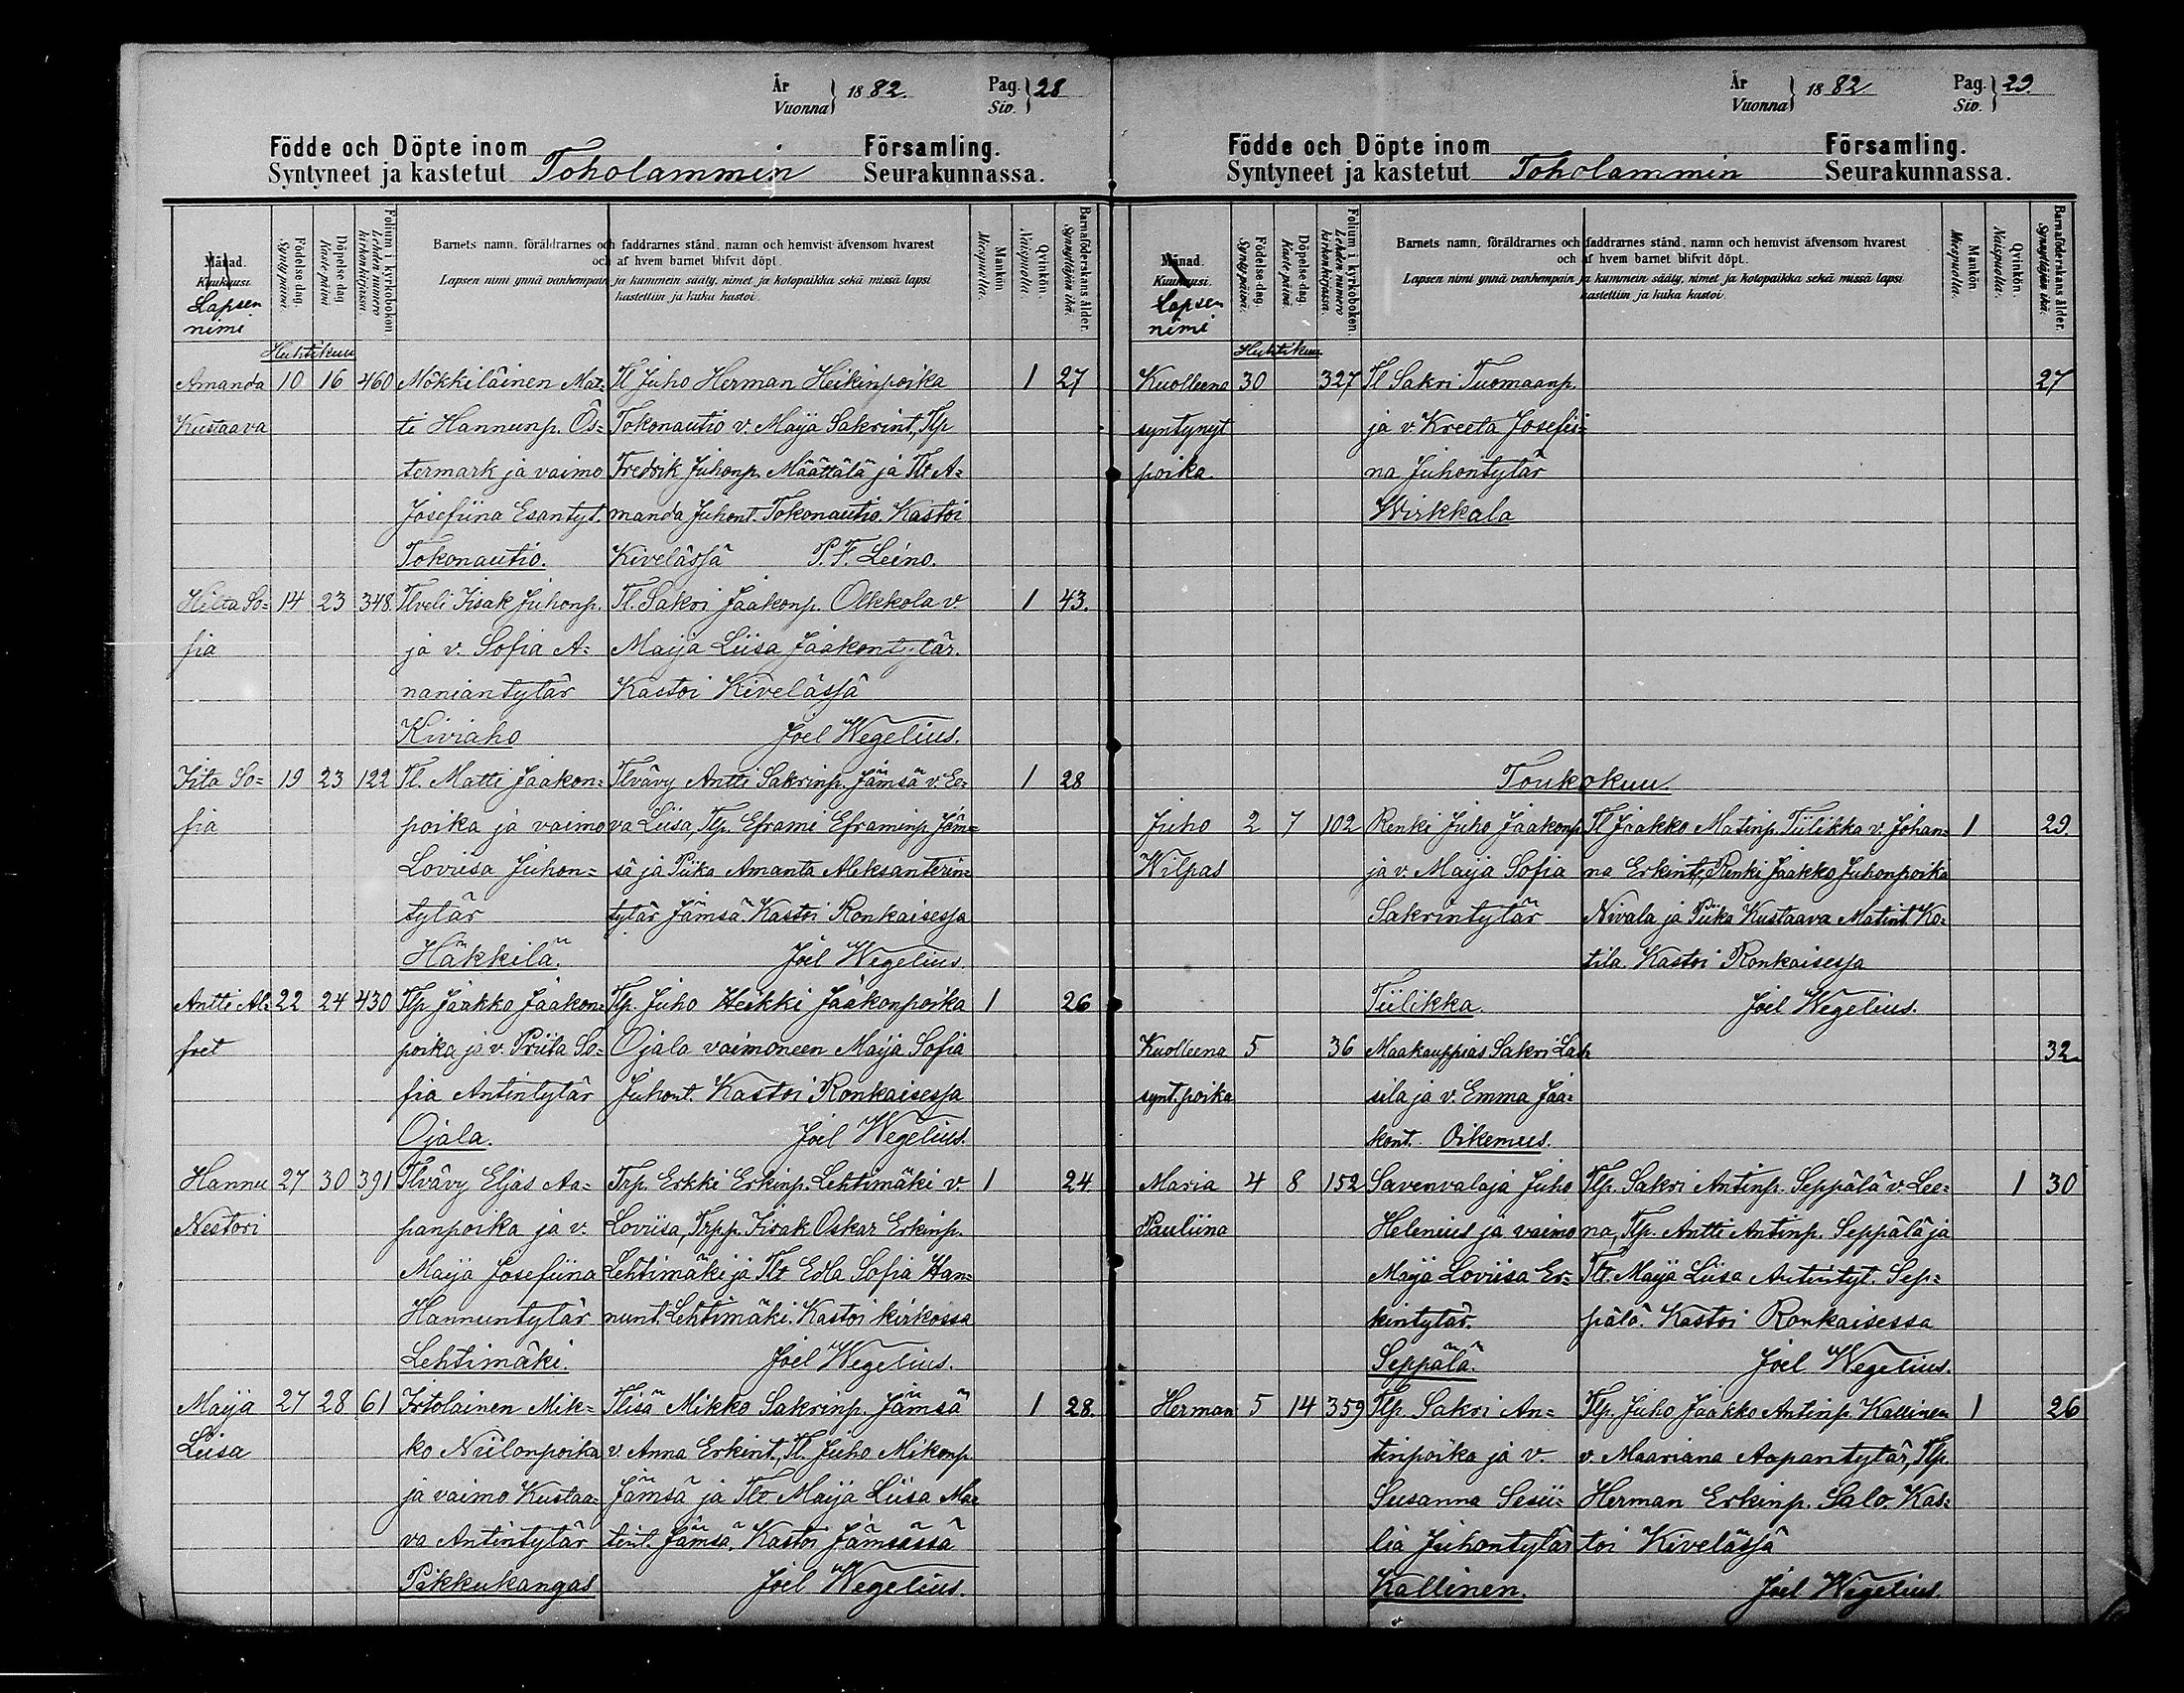 År
Vuonna } 1882. Pag.
Siv. } 28
Födde och Döpte inom Församling.
Syntyneet ja kastetut Toholammin Seurakunnassa.
Månad.
Kuukausi.
Lapsen
nimi
Födelse-dag.
Syntypäivä.
Döpelse-dag
Kaste-päivä
Folium i kyrkoboken.
Lehden numero
kirkonkirjassa.
Barnets namn, föräldrarnes och faddrarnes stånd, namn och hemvist äfvensom hvarest
och af hvem barnet blifvit döpt.
Lapsen nimi ynnä vanhempain ja kummein sääty, nimet ja kotopaikka sekä missä lapsi
kastettiin ja kuka kastoi.
Mankön.
Miespuolia.
Qvinkön.
Naispuolia.
Barnaföderskans ålder.
Synnyttäjän ikä.
Huhtikuu
Amanda 10 16 460 Mökkiläinen Mat= Tl Juho Herman Heikinpoika 1 27
Kustaava ti Hannunp. Ös= Tokonautio v. Maija Sakrint, Tlp
termark ja vaimo Fredrik Juhonp. Määttälä ja Tlt A=
Josefiina Esantyt. manda Juhont. Tokonautio. Kastoi
Tokonautio. Kivelässä P. F. Leino.
Hilta So= 14 23 348 Tlveli Iisak Juhonp. Tl. Sakri Jaakonp. Olkkola v. 1 43.
fia ja v. Sofia A= Maija Liisa Jaakontytär.
naniantytär Kastoi Kivelässä
Kiviaho Joel Wegelius.
Iita So= 19 23 122 Tl. Matti Jaakon= Tlvävy Antti Sakrinp. Jämsä v. Ee= 1 28
fia poika ja vaimo va Liisa, Tlp. Eframi Eframinp Jäm=
Loviisa Juhon= sä ja Piika Amanta Aleksanterin=
tytär tytär Jämsä. Kastoi Ronkaisessa
Häkkilä. Joel Wegelius.
Antti Al= 22 24 430 Tlp Jaakko Jaakon= Tlp. Juho Heikki Jaakonpoika 1 26
fret poika ja v. Priita So= Ojala vaimoneen Maija Sofia
fia Antintytär Juhont. Kastoi Ronkaisessa
Ojala. Joel Wegelius.
Hannu 27 30 391 Tlvävy Eljas Aa= Trp. Erkki Erkinp. Lehtimäki v. 1 24
Nestori panpoika ja v. Loviisa, Trpp. Iisak Oskar Erkinp.
Maija Josefiina Lehtimäki ja Tlt Edla Sofia Han=
Hannuntytär nunt. Lehtimäki. Kastoi kirkossa
Lehtimäki. Joel Wegelius.
Maija 27 28 61 Irtolainen Mik= Tlisä Mikko Sakrinp. Jämsä 1 28.
Liisa ko Niilonpoika v. Anna Erkint., Tl. Juho Mikonp
ja vaimo Kustaa= Jämsä ja Tlt Maija Liisa Ma=
va Antintytär tint. Jämsä. Kastoi Jämsässä
Pikkukangas Joel Wegelius.
År
Vuonna } 1882 Pag.
Siv. } 29.
Födde och Döpte inom Församling.
Syntyneet ja kastetut Toholammin Seurakunnassa.
Månad.
Kuukausi.
Lapsen
nimi
Födelse-dag.
Syntypäivä.
Döpelse-dag
Kaste-päivä.
Folium i kyrkoboken.
Lehden numero
kirkonkirjassa.
Barnets namn, föräldrarnes och faddrarnes stånd, namn och hemvist äfvensom hvarest
och af hvem barnet blifvit döpt.
Lapsen nimi ynnä vanhempain ja kummein sääty, nimet ja kotopaikka sekä missä lapsi
kastettiin ja kuka kastoi.
Mankön.
Miespuolia.
Qvinkön.
Naispuolia.
Barnaföderskans ålder.
Synnyttäjän ikä.
Huhtikuu
Kuolleena 30 327 Tl Sakri Tuomaanp. 27
syntynyt ja v. Kreeta Josefii=
poika. na Juhontytär
Wirkkala
Toukokuu.
Juho 2 7 102 Renki Juho Jaakonp Tl Jaakko Matinp. Tiilikka v. Johan= 1 29.
Wilpas ja v. Maija Sofia na Erkint, Renki Jaakko Juhonpoika
Sakrintytär Nivala ja Piika Kustaava Matint. Ko=
tila. Kastoi Ronkaisessa
Tiilikka. Joel Wegelius.
Kuolleena 5 36 Maakauppias Sakri Las 32
synt. poika sila ja v. Emma Jaa=
kont. Oikemus.
Maria 4 8 152 Savenvalaja Juho Tlp. Sakri Antinp. Seppälä v. Lee= 1 30
Pauliina Helenius ja vaimo na, Tlp. Antti Antinp. Seppälä ja
Maija Loviisa Er= Tlt. Maija Liisa Antintyt. Sep=
kintytär. pälä. Kastoi Ronkaisessa
Seppälä. Joel Wegelius.
Herman 5 14 359 Tlp. Sakri An= Tlp. Juho Jaakko Antinp. Kallinen 1 26
tinpoika ja v. v. Maariana Aapantytär, Tlp.
Susanna Sesii= Herman Erkinp. Salo. Kas=
lia Juhontytär toi Kivelässä
Kallinen. Joel Wegelius.